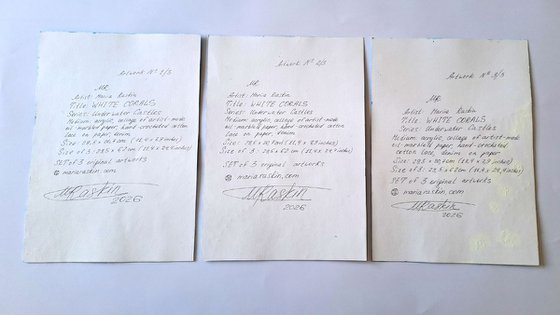 Artwork Nº 1/3
MR
Artist: Maria Raskin
Title: WHITE CORALS
Series: Underwater Castles
Medium: acrylic, collage of artist-made
oil marbled paper, hand-crocheted cotton
lace on paper, denim
Size: 29,5 x 20,4 cm
Size of 3: 29,5 x 62 cm
SET of 3 original artworks
mariaraskin.com
MRaskin
2026
Artwork Nº 2/3
MR
Artist: Maria Raskin
Title: WHITE CORALS
Series: Underwater Castles
Medium: acrylic, collage of artist-made
oil marbled paper, hand-crocheted cotton
lace on paper, denim
Size: 29,5 x 20,4 cm
Size of 3: 29,5 x 62 cm
SET of 3 original artworks
mariaraskin.com
MRaskin
2026
Artwork Nº 3/3
MR
Artist: Maria Raskin
Title: WHITE CORALS
Series: Underwater Castles
Medium: acrylic, collage of artist-made
oil marbled paper, hand-crocheted
cotton lace, denim on paper
Size: 29,5 x 20,4 cm
Size of 3: 29,5 x 62 cm
SET of 3 original artworks
mariaraskin.com
MRaskin
2026